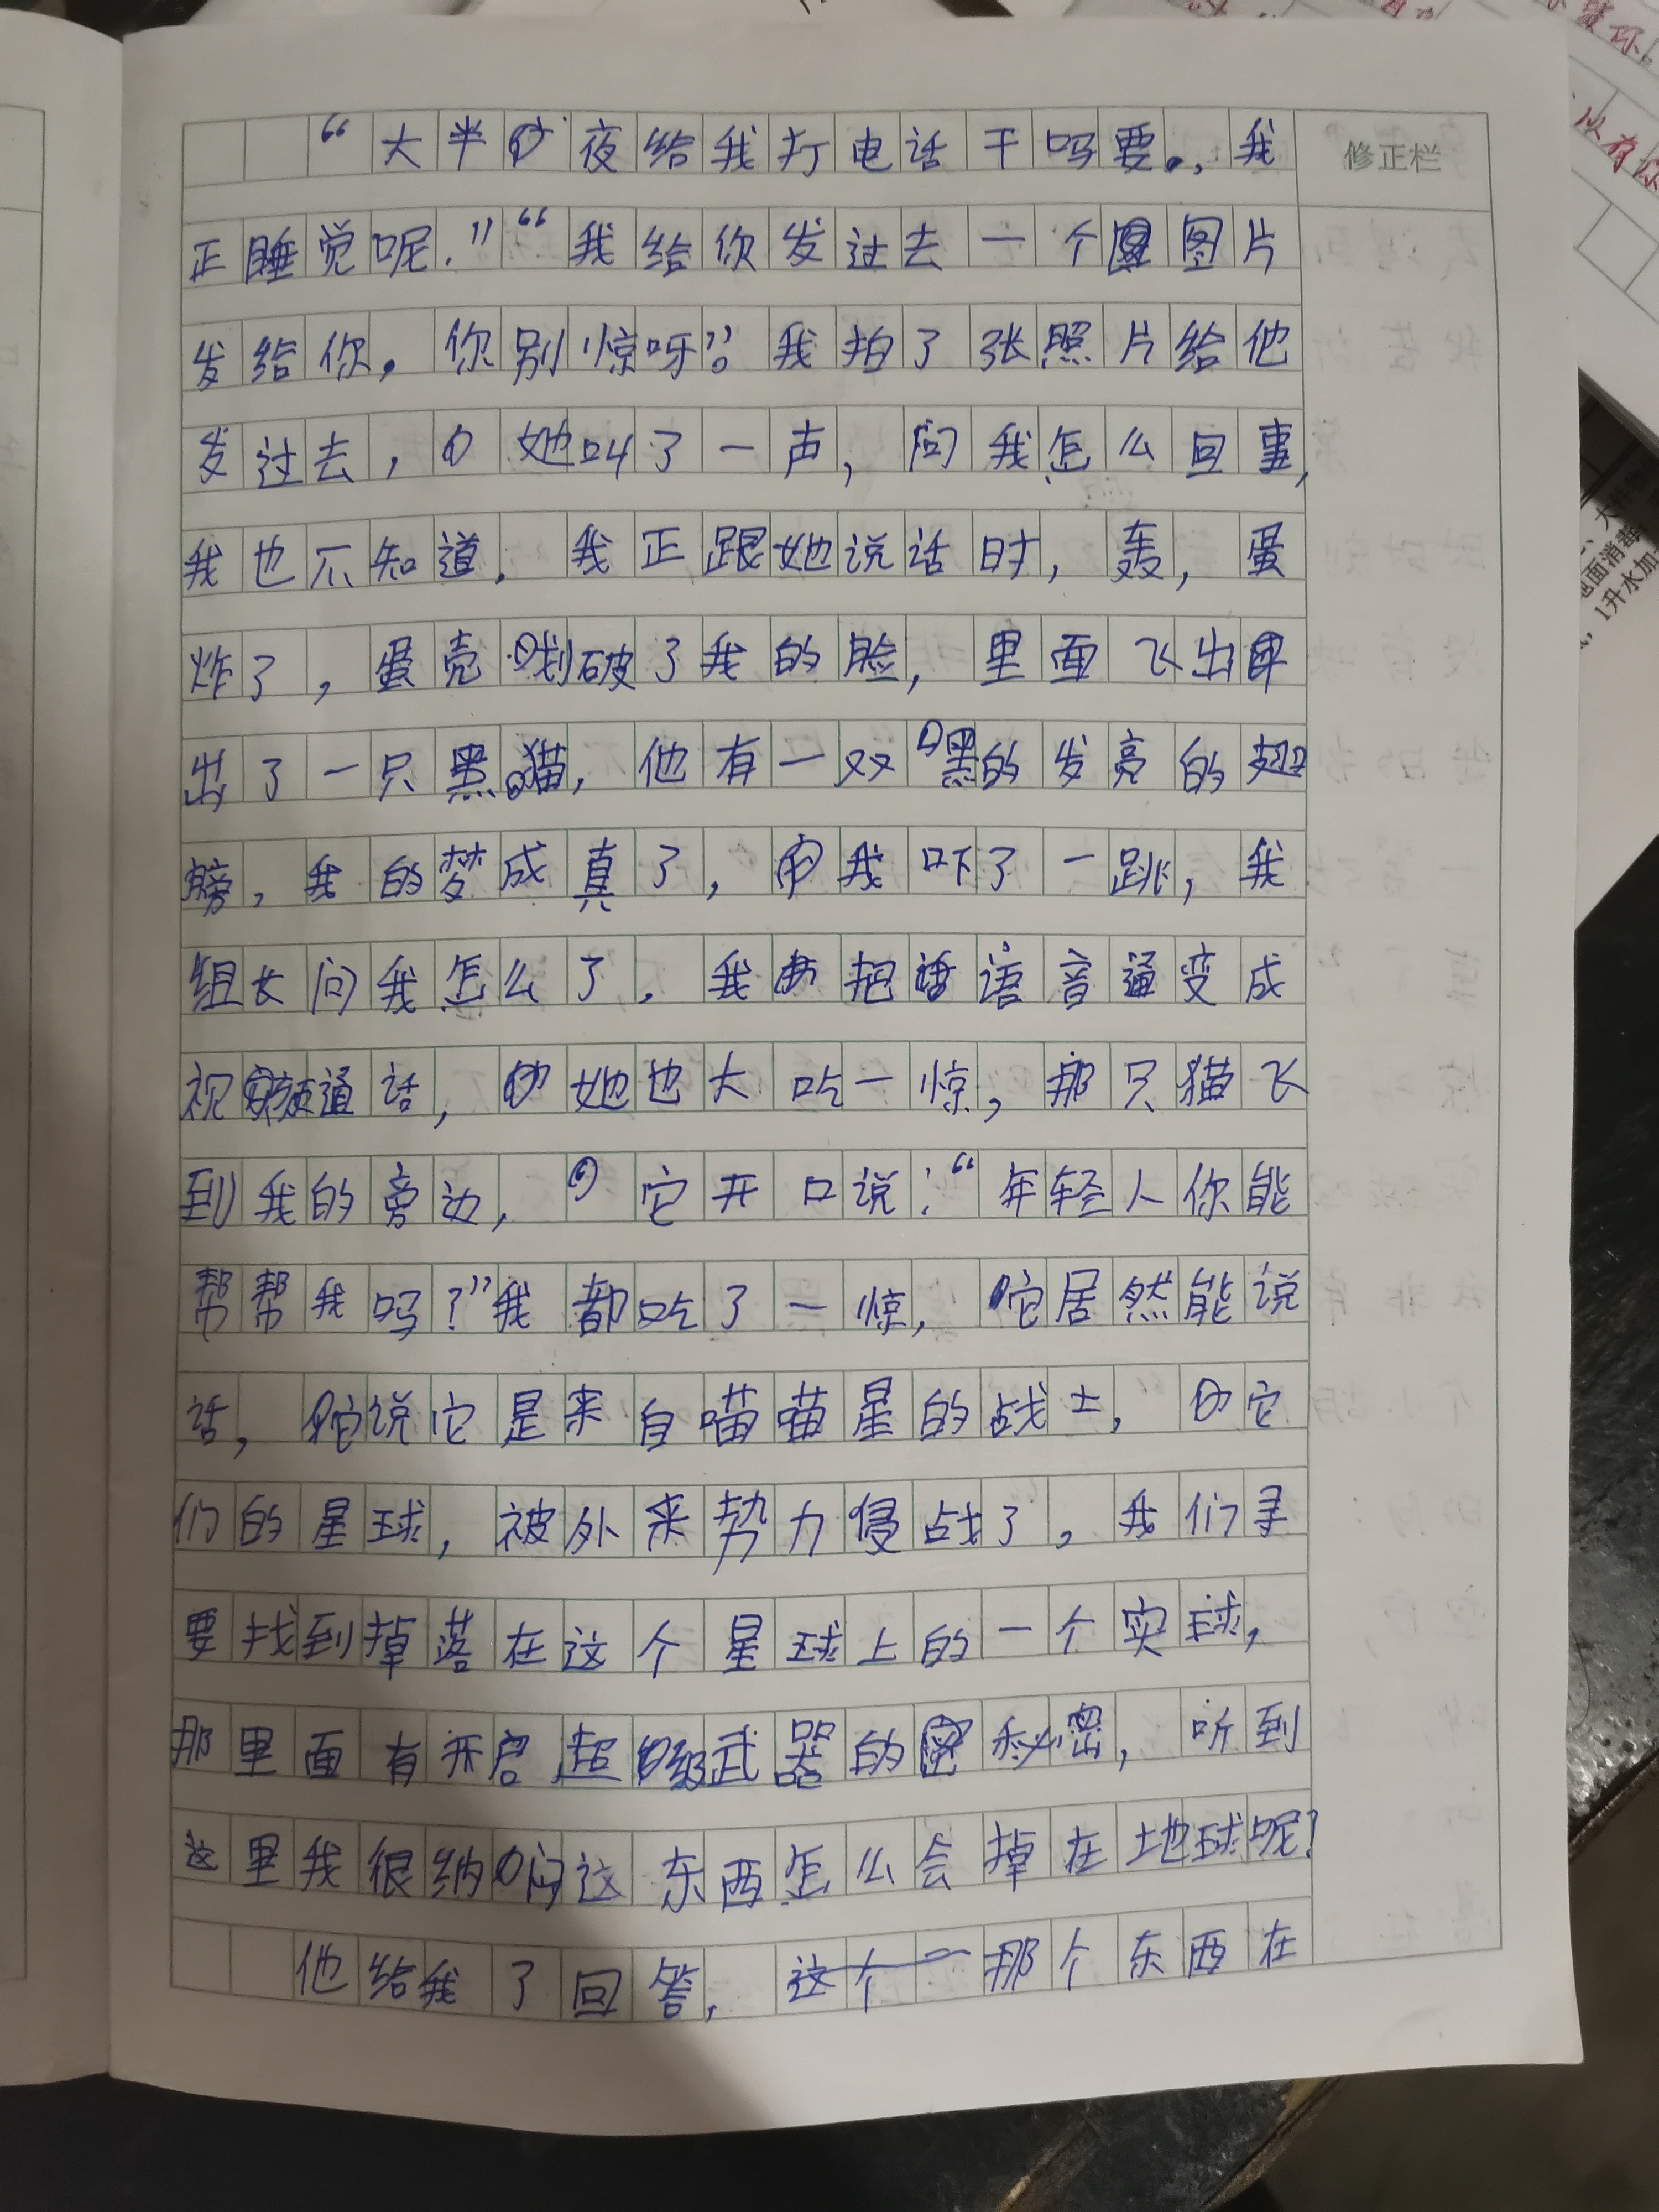 “大半夜给我打电话干吗要。,我
修正栏
正睡觉呢.”“我给你发过去一个图片
发给你。你别惊呀”。我拍了张照片给他
发过去,她叫了一声,问我怎么回事,
我也不知道。我正跟她说话时,轰,蛋
炸了,蛋壳划破了我的脸,里面飞出
出了一只黑猫,他有一双黑的发亮的翅
膀,我的梦成真了,我吓了一跳,我
组长问我怎么了。我把语音通变成
视频通话,她也大吃一惊,那只猫飞
到我的旁边,它开口说:“年轻人你能
帮帮我吗?”我都吃了一惊,它居然能说
话,它说它是来自喵喵星的战士,它
们的星球,被外来势力侵战了,我们寻
要找到掉落在这个星球上的一个实球,
那里面有开启超级武器的秘密,听到
这里我很纳闷这东西怎么会掉在地球呢?
他给我了回答,这个一那个东西在
以有你
地面消毒
1升水加